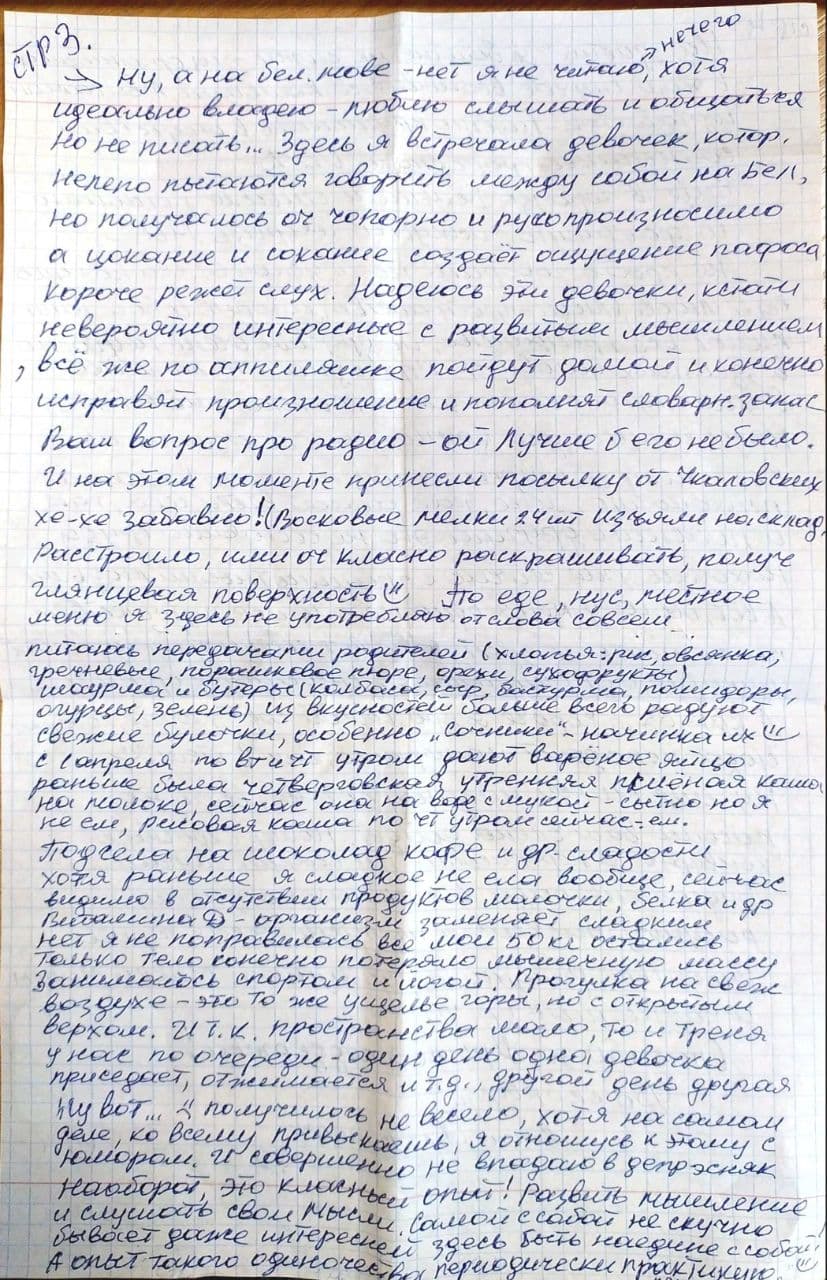 стр 3.
нечего
Ну, а на бел. мове - нет я не читаю, хотя
идеально владею - люблю слышать и общаться
но не писать... Здесь я встречала девочек, котор.
нелепо пытаются говорить между собой на бел,
но получалось оч чопорно и рукопроизносимо
а цокание и сокание создаёт ощущение пафоса
короче режет слух. Надеюсь эти девочки, кстати
невероятно интересные с развитым мышлением
, всё же по аппиляшке пойдут домой и конечно
исправят произношение и пополнят словарн. запас
Ваш вопрос про радио - ой лучше б его не было.
И на этом моменте принесли посылку от Чкаловских
хе-хе забавно! (Восковые мелки 24 шт изъяли на склад,
Расстроило, ими оч класно раскрашивать, получ
глянцевая поверхность По еде, нус, местное
меню я здесь не употребляю от слова совсем
питаюсь передачами родителей (хлопья: рис, овсянка,
гречневые, порошковое пюре, орехи, сухофрукты)
шаурма и бутеры (колбаса, сыр, бастурма, помидоры,
огурцы, зелень) из вкусностей больше всего радуют
свежие булочки, особенно „Сочники" - начинка их
с 1 апреля по вт и чт утром дают варёное яйцо
раньше была четверговская, утренняя пшёная каша
на молоке, сейчас она на воде с мукой - сытно но я
не ем, рисовая каша по чт утрам сейчас - ем.
Подсела на шоколад кофе и др. сладости
хотя раньше я сладкое не ела вообще, сейчас
видимо в отсутствии продуктов молочки, белка и др
Витамина Д - организм заменяет сладким
нет я не поправилась все мои 50 кг остались
только тело конечно потеряло мышечную массу
Занималось спортом и йогой. Прогулка на свеж
воздухе - это то же ущелье горы, но с открытым
верхом. И т.к. пространства мало, то и треня
у нас по очереди - один день одна девочка
приседает, отжимается и т.д., другой день другая
Ну вот... получилось не весело, хотя на самом
деле, ко всему привыкаешь, я отношусь к этому с
юмором. И совершенно не впадаю в депрэсняк
наоборот, это класный опыт! Развить мышление
и слушать свои мысли. Самой с собой не скучно
бывает даже интересней здесь быть наедине с собой!
А опыт такого одиночества периодически практикую.